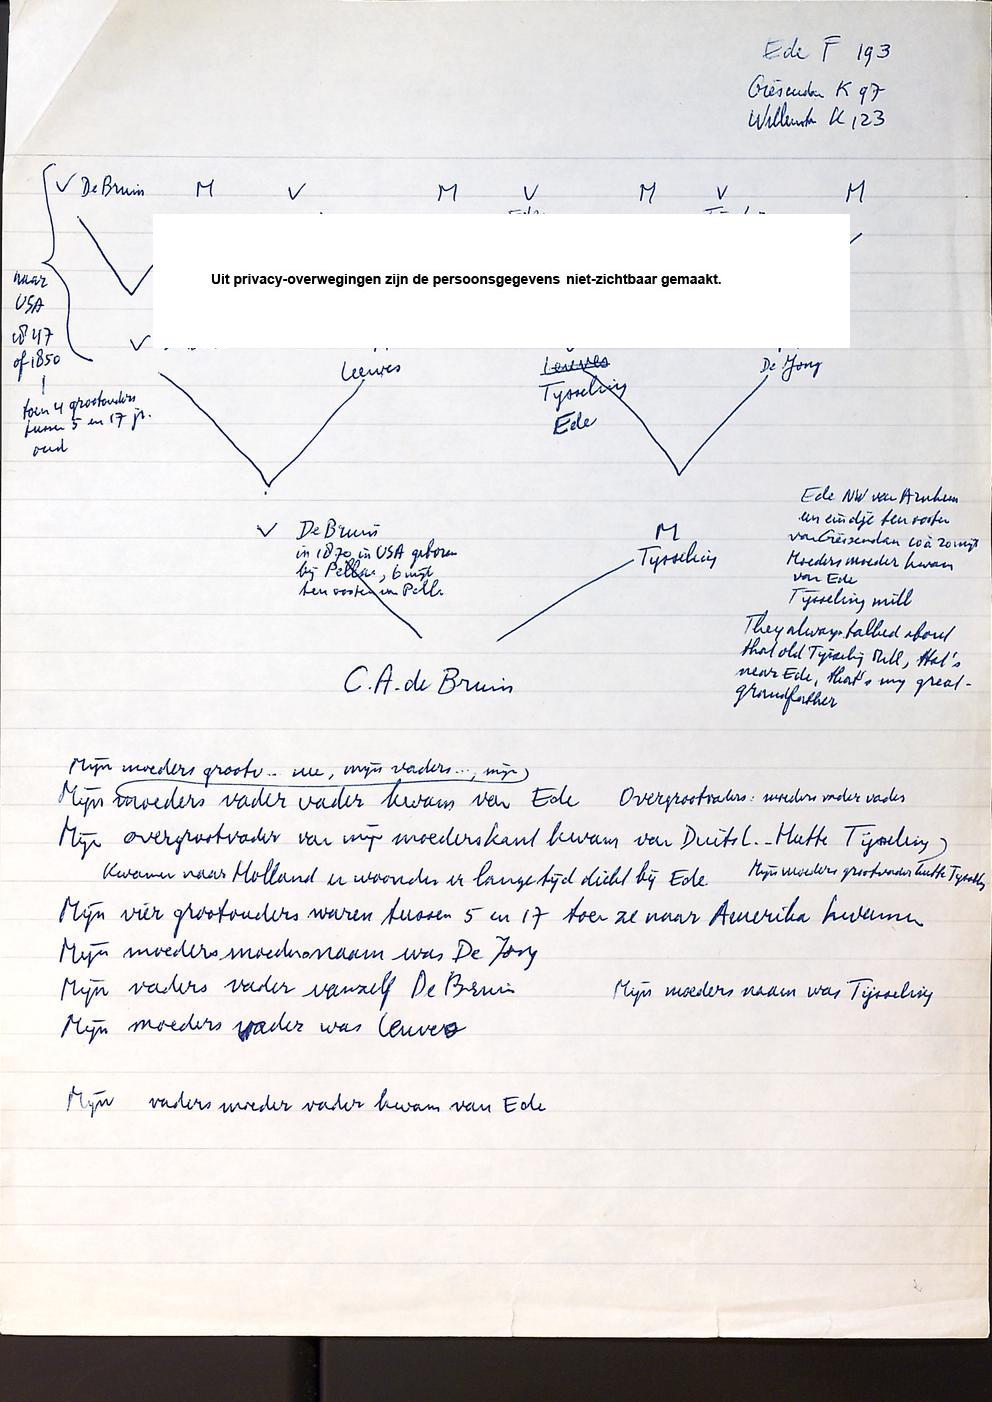 Ede F 193
Giesendam K 97
Willemstad K 123
V De Bruin M V M V M V M
Uit privacy-overwegingen zijn de persoonsgegevens niet-zichtbaar gemaakt.
naar
USA
1847
of 1850
toen 4 grootouders
tussen 5 en 17 jr.
oud
V
Leeuves
Leuves
Tysseling
Ede
De Jong
V De Bruin
in 1870 in USA geboren
bij Pella, 6 mijl
ten oosten van Pella
M
Tysseling
Ede NW van Arnhem
een eindje ten oosten
van Giesendam 10 à 20 mijl
Moeders moeder kwam
van Ede
Tysseling mill
They always talked about
that old Tysseling Mill, that's
near Ede, that's my great-
grandfather
C.A. de Bruin
Mijn moeders grootv.. ne, mijn vaders..., mijn
Mijn moeders vader vader kwam van Ede Overgrootvaders: moeders vader vader
Mijn overgrootvader van mijn moederskant kwam van Duitsl.. Hutte Tijsseling
Kwamen naar Holland en woonden er lange tijd dicht bij Ede Mijn moeders grootvader hutte Tysseling
Mijn vier grootouders waren tussen 5 en 17 toen ze naar Amerika kwamen
Mijn moeders moedersnaam was De Jong
Mijn vaders vader vanzelf De Bruin Mijn moeders naam was Tijsseling
Mijn moeders vader was Leuves
Mijn vaders moeder vader kwam van Ede